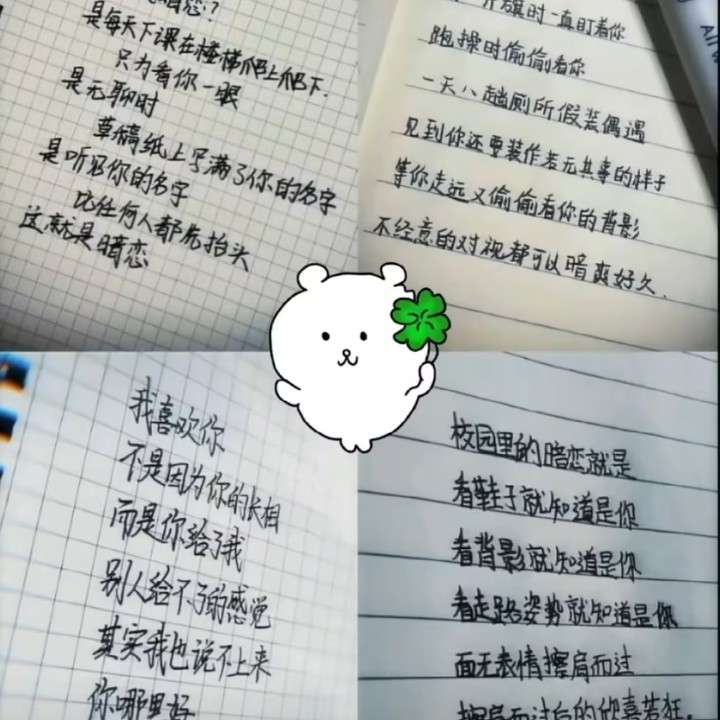 暗恋?
是每天下课在楼梯爬上爬下
只为看你一眼
是无聊时
草稿纸上写满了你的名字
是听见你的名字
比任何人都先抬头
这就是暗恋
升旗时一直盯着你
跑操时偷偷看你
一天八趟厕所假装偶遇
见到你还要装作若无其事的样子
等你走远又偷偷看你的背影
不经意的对视都可以暗爽好久.
我喜欢你
不是因为你的长相
而是你给了我
别人给不了的感觉
其实我也说不上来
你哪里好
校园里的暗恋就是
看鞋子就知道是你
看背影就知道是你
看走路姿势就知道是你
面无表情擦肩而过
擦肩而过后的欣喜若狂.